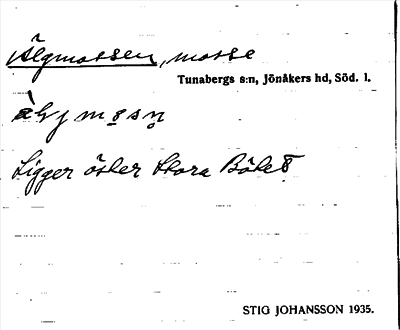 Älgmossen, mosse
Tunabergs s:n, Jönåkers hd, Söd. l.
Ligger öster Stora
STIG JOHANSSON 1935.